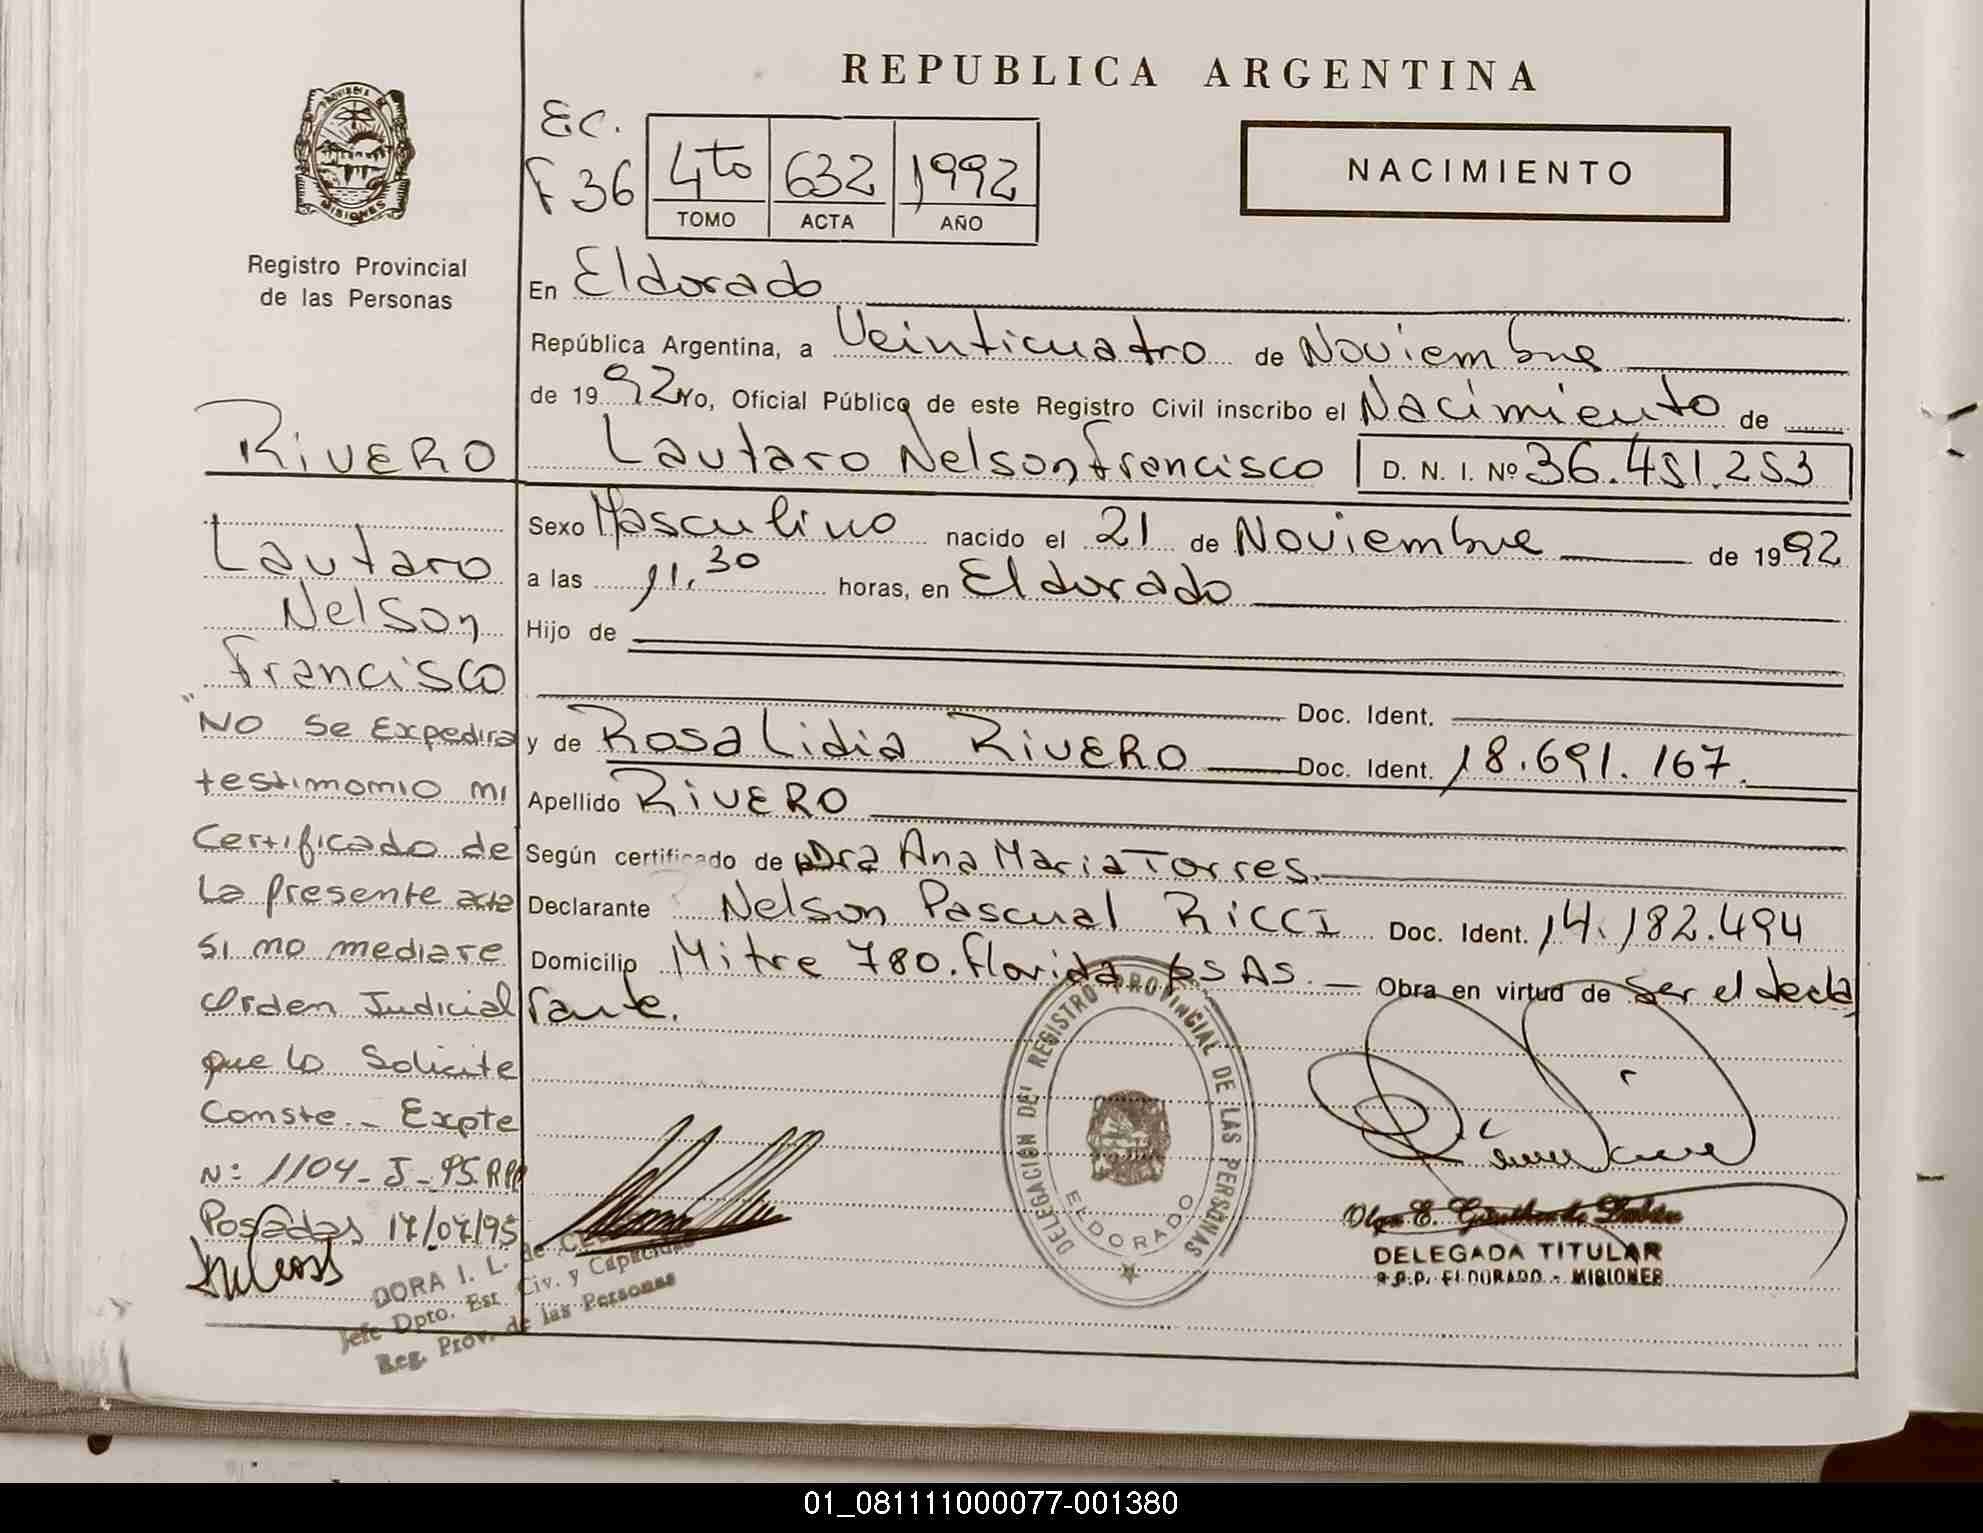 REPUBLICA ARGENTINA
PROVINCIA DE
MISIONES
Registro Provincial
de las Personas
EC.
F 36
4to 632 1992
TOMO ACTA AÑO
NACIMIENTO
En Eldorado
República Argentina, a Veinticuatro de Noviembre
de 1992 Yo, Oficial Público de este Registro Civil inscribo el Nacimiento de
Lautaro Nelson Francisco D. N. I. Nº 36.451.253
Sexo Masculino nacido el 21 de Noviembre de 1992
a las 11,30 horas, en Eldorado
Hijo de
Doc. Ident.
y de Rosa Lidia RIVERO Doc. Ident. 18.691.167.
Apellido RIVERO
Según certificado de Dra Ana Maria Torres.
Declarante Nelson Pascual RICCI Doc. Ident. 14.182.494
Domicilio Mitre 780. Florida Bs As. Obra en virtud de ser el decla
rante.
RIVERO
Lautaro
Nelson
Francisco
"NO se Expedira
testimomio mi
Certificado de
La presente acta
si mo mediare
Orden Judicial
que lo Solicite
Comste.- Expte
N: 1104-J-95.RPP
Posadas 17/07/95
DORA I. L. de
Jefe Dpto. Est. Civ. y Capacidad
Reg. Prov. de las Personas
DELEGACION DEL REGISTRO PROVINCIAL DE LAS PERSONAS
ELDORADO
Olga E.
DELEGADA TITULAR
R.P.P. ELDORADO - MISIONES
01_081111000077-001380